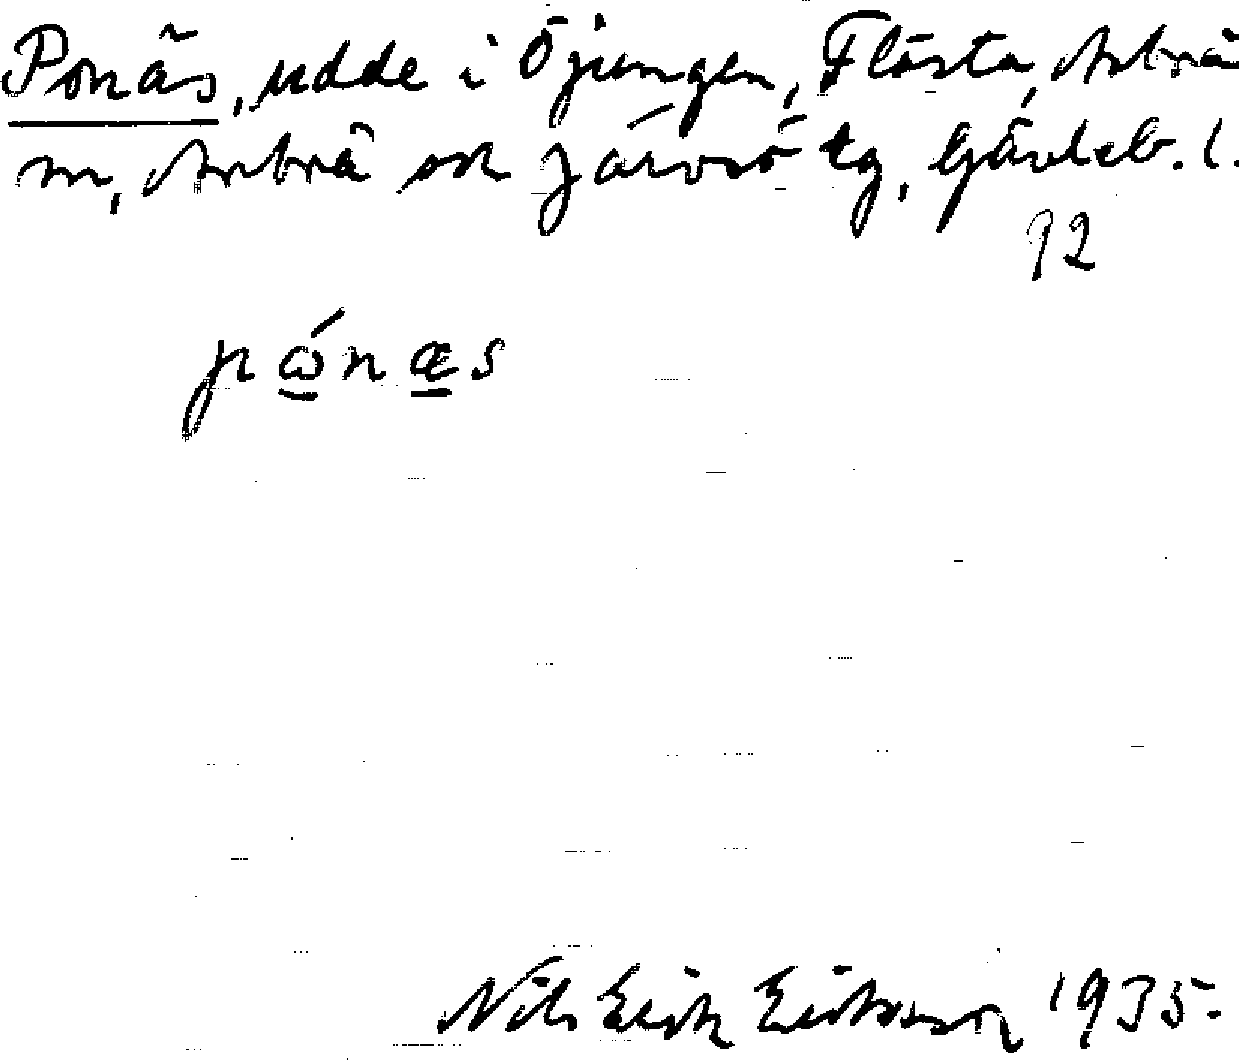 Ponäs, udde i Öjungen, Flästa, Arbrå
sn, Arbrå och Järvsö tg, Gävleb. l.
92
pώnæs
Nils Erik Eriksson 1935.